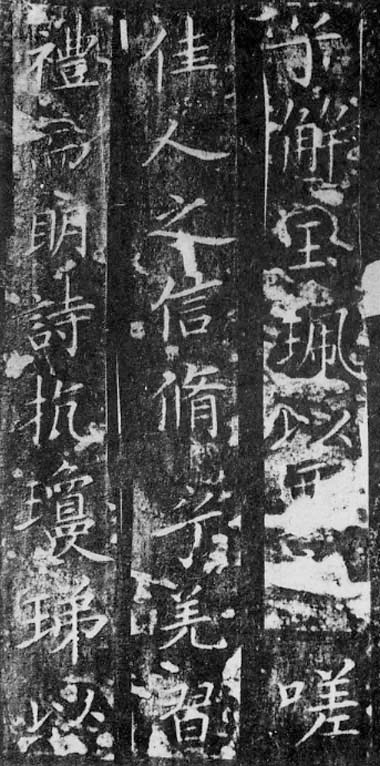 兮解玉珮以嗟
佳人之信脩兮羌習
禮而明詩抗瓊珶以